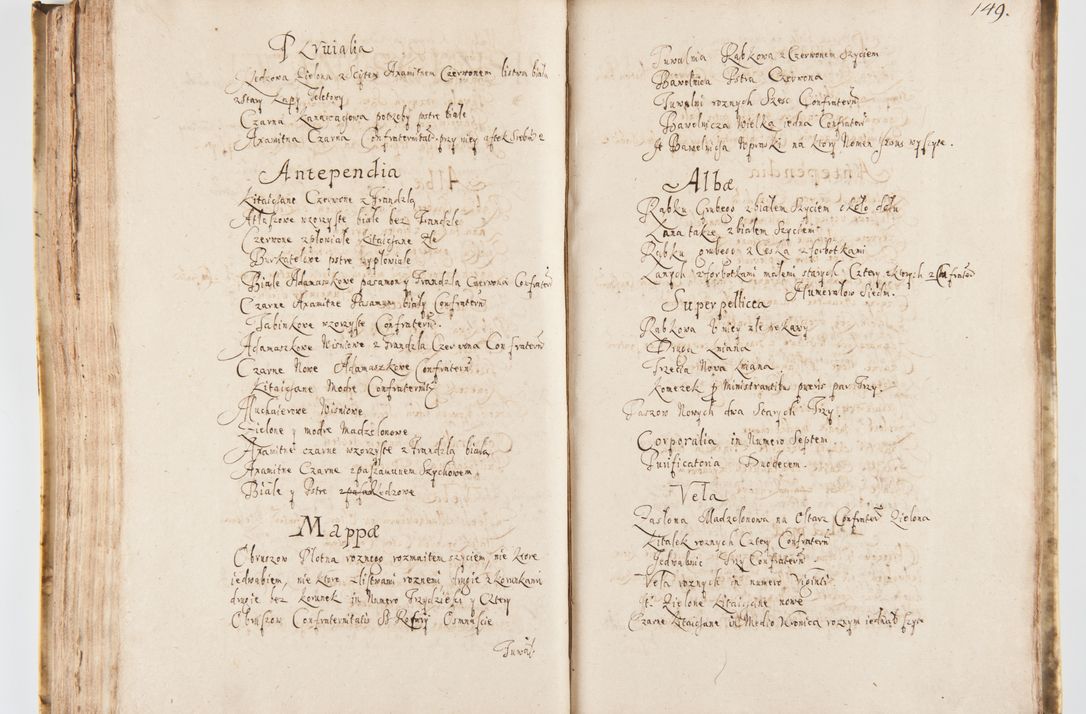 Pluuialia
Kiedzowa Zielona z Scÿtem Axamitnem Czerwonem listwa biała
z stary Kapy Teletowy
Czarna Kanawacowa potrzeby pstre białe
Axamitna Czarna Confraternitat. przy niey
Antependia
Kitaiczane Czerwone z frandzlą
Atłasowe wzorzyste białe bez frandzle
Czerwone zpłoniałe Kitaiczane złe
Burkatelowe pstre wypłoniałe
Białe Adamaszkowe pasamony frandzla Czerwona Confrater
Czarne Axamitne Pasamon biały Confratern
Tabinkowe wzorzyste Confratern.
Adamaszkowe Wisniowe z frandzlą Czerwona Confratern
Czarne Nowe Adamaszkowe Confratern
Kitaiczane Modre Confraternit
Muchaierowe Wisniowe
Zielone y modre Madzelonowe
Axamitne czarne wzorzyste z frandzlą białą
Axamitne Czarne z paszamunem Szychowem
Białe y Pstre Kiedzowe
Mappæ
Obrusow Płotna roznego rozmaitem szyciem, nie ktore
iedwabiem, nie ktore z listwami roznemi drugie z koronkami
drugie bez koronek in Numero Trzydziesci y Cztery
Obrusow Confraternitatis Osmnascie
Tuwal
149.
Tuwalnia Rąbkowa z Czerwonem Szyciem
Bawelnica Pstra Czerwona
Tuwalni roznych Szesc Confratern
Bawelnicza Wielka iedna Confrater
It Bawelnicza na ktory Nomen wyszyte.
Albæ
Rąbku Grubego z białem Szyciem około dołu
Lana takze z białem Szyciem
Rąbku grubego z Czeska z forbotkami
Lanych z forbotkami małemi starych Cztery z ktorych 2 Confrater
Humerałow Siedm.
Superpellicea
Rąbkowa U niey złe rekawy
Druga Lniana
Trzecia Nowa Lniana
Komezek p Ministrantibus pueris par Trzy.
Paszow Nowych dwa Starych Trzy.
Corporalia in Numero Septem
Purificatoria Duodecem.
Vela
Zasłona Madzelonowa na Ołtarz Confrater Zielona
Kitaiek roznych Cztery Confratern
Jedwabnic Trzy Confratern
Vela roznych in numero Viginti
It. Zielone Kitaiczane nowe
Czarne Kitaiczane in Medio Wronica roznym iedwab szyta